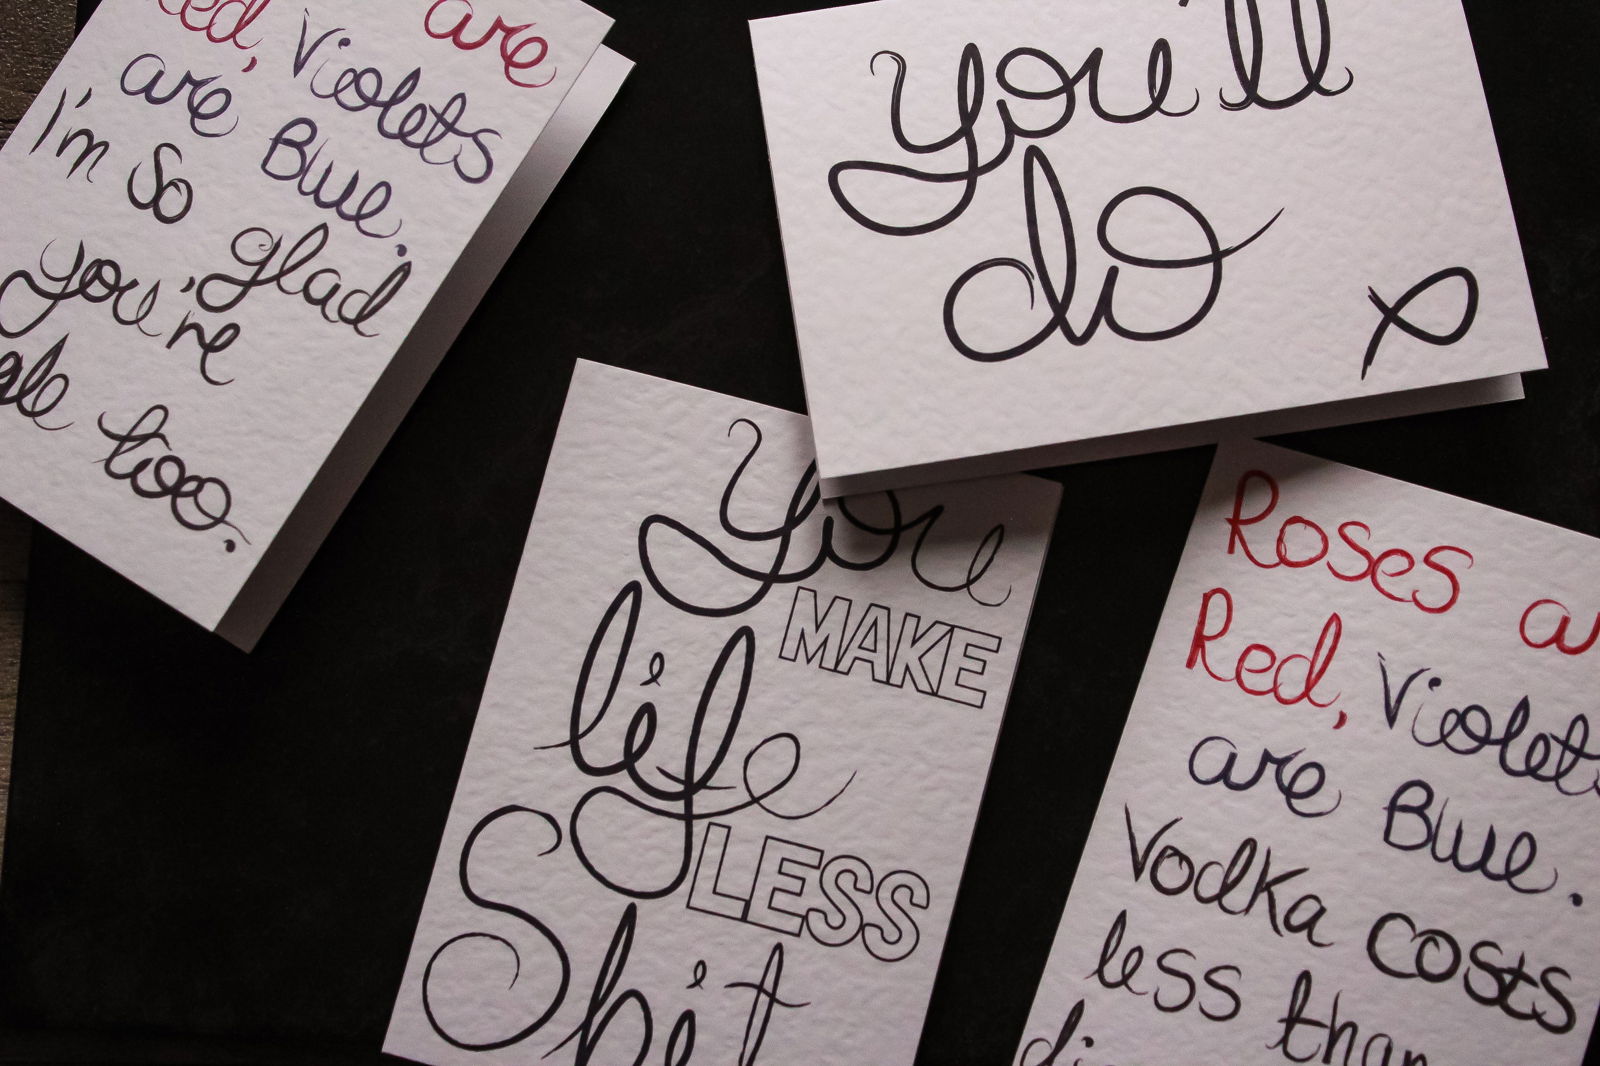 are
Red, Violets
are Blue.
I'm So glad
you're
too.
you'll
do
You
MAKE
life
LESS
Shit
Roses
Red, Violets
are Blue.
Vodka costs
less than